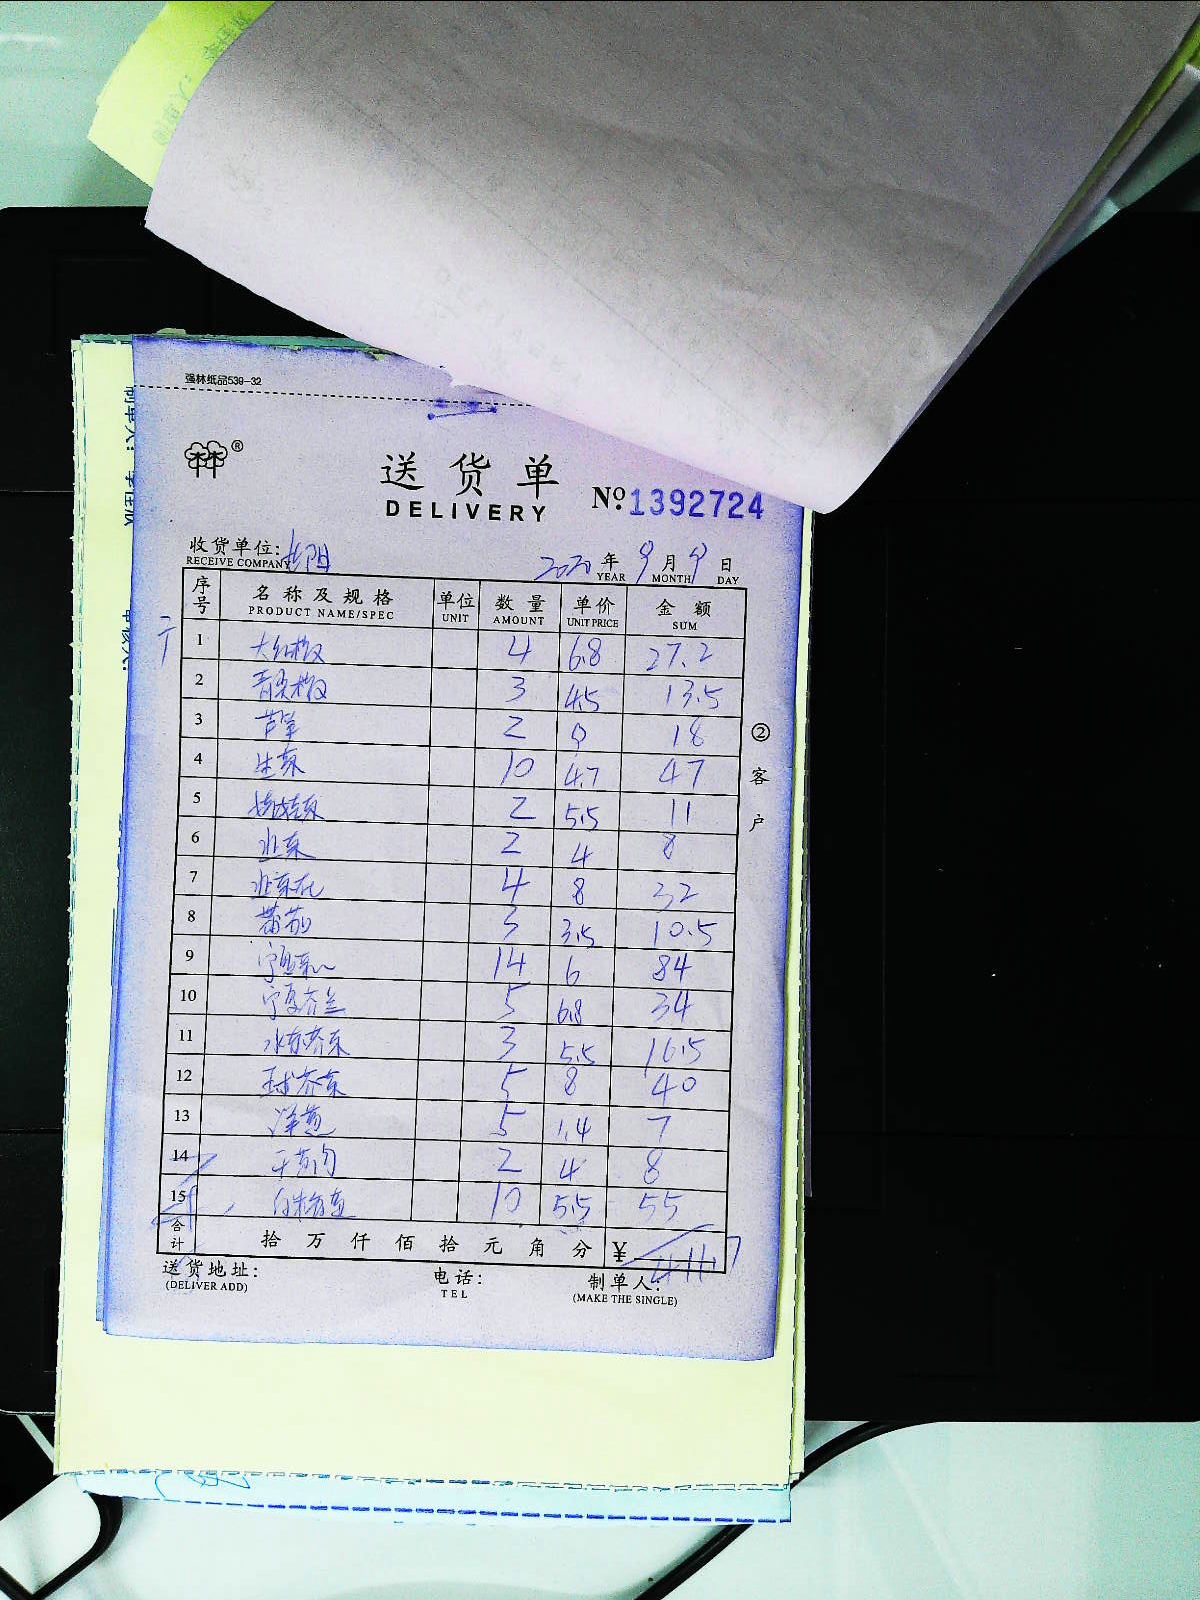 强林纸品539-32
®
送货单
DELIVERY
No.1392724
收货单位:
RECEIVE COMPANY
2020年9月9日
YEAR MONTH DAY
序号 名称及规格 单位 数量 单价 金额
PRODUCT NAME/SPEC UNIT AMOUNT UNIT PRICE SUM
1 大红椒 4 6.8 27.2
2 青尖椒 3 4.5 13.5
3 芦笋 2 9 18
4 生菜 10 4.7 47
5 2 5.5 11
6 韭菜 2 4 8
7 韭菜花 4 8 32
8 蕃茄 3 3.5 10.5
9 宁夏菜心 14 6 84
10 宁夏芥兰 5 6.8 34
11 水东芥菜 3 5.5 16.5
12 5 8 40
13 洋葱 5 1.4 7
14 2 4 8
15 10 5.5 55
合计 拾万仟佰拾元角分 ¥ 411.7
送货地址: 电话: 制单人:
(DELIVER ADD) TEL (MAKE THE SINGLE)
②客户